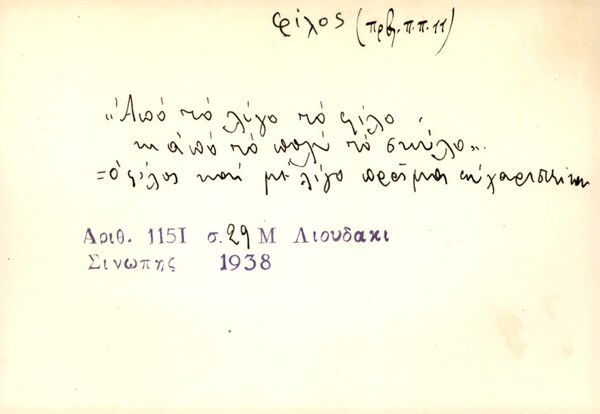 φίλος (πρβ. π.π. 11)
„Ἀπό τό λίγο τό φίλο
κι ἀπό τό πολύ τό σκύλο„.
=ὁ φίλος καί μέ λίγο πρᾶμα εὐχαριστιέται
Αριθ. 1151 σ. 29 Μ Λιουδακι
Σινωπης 1938